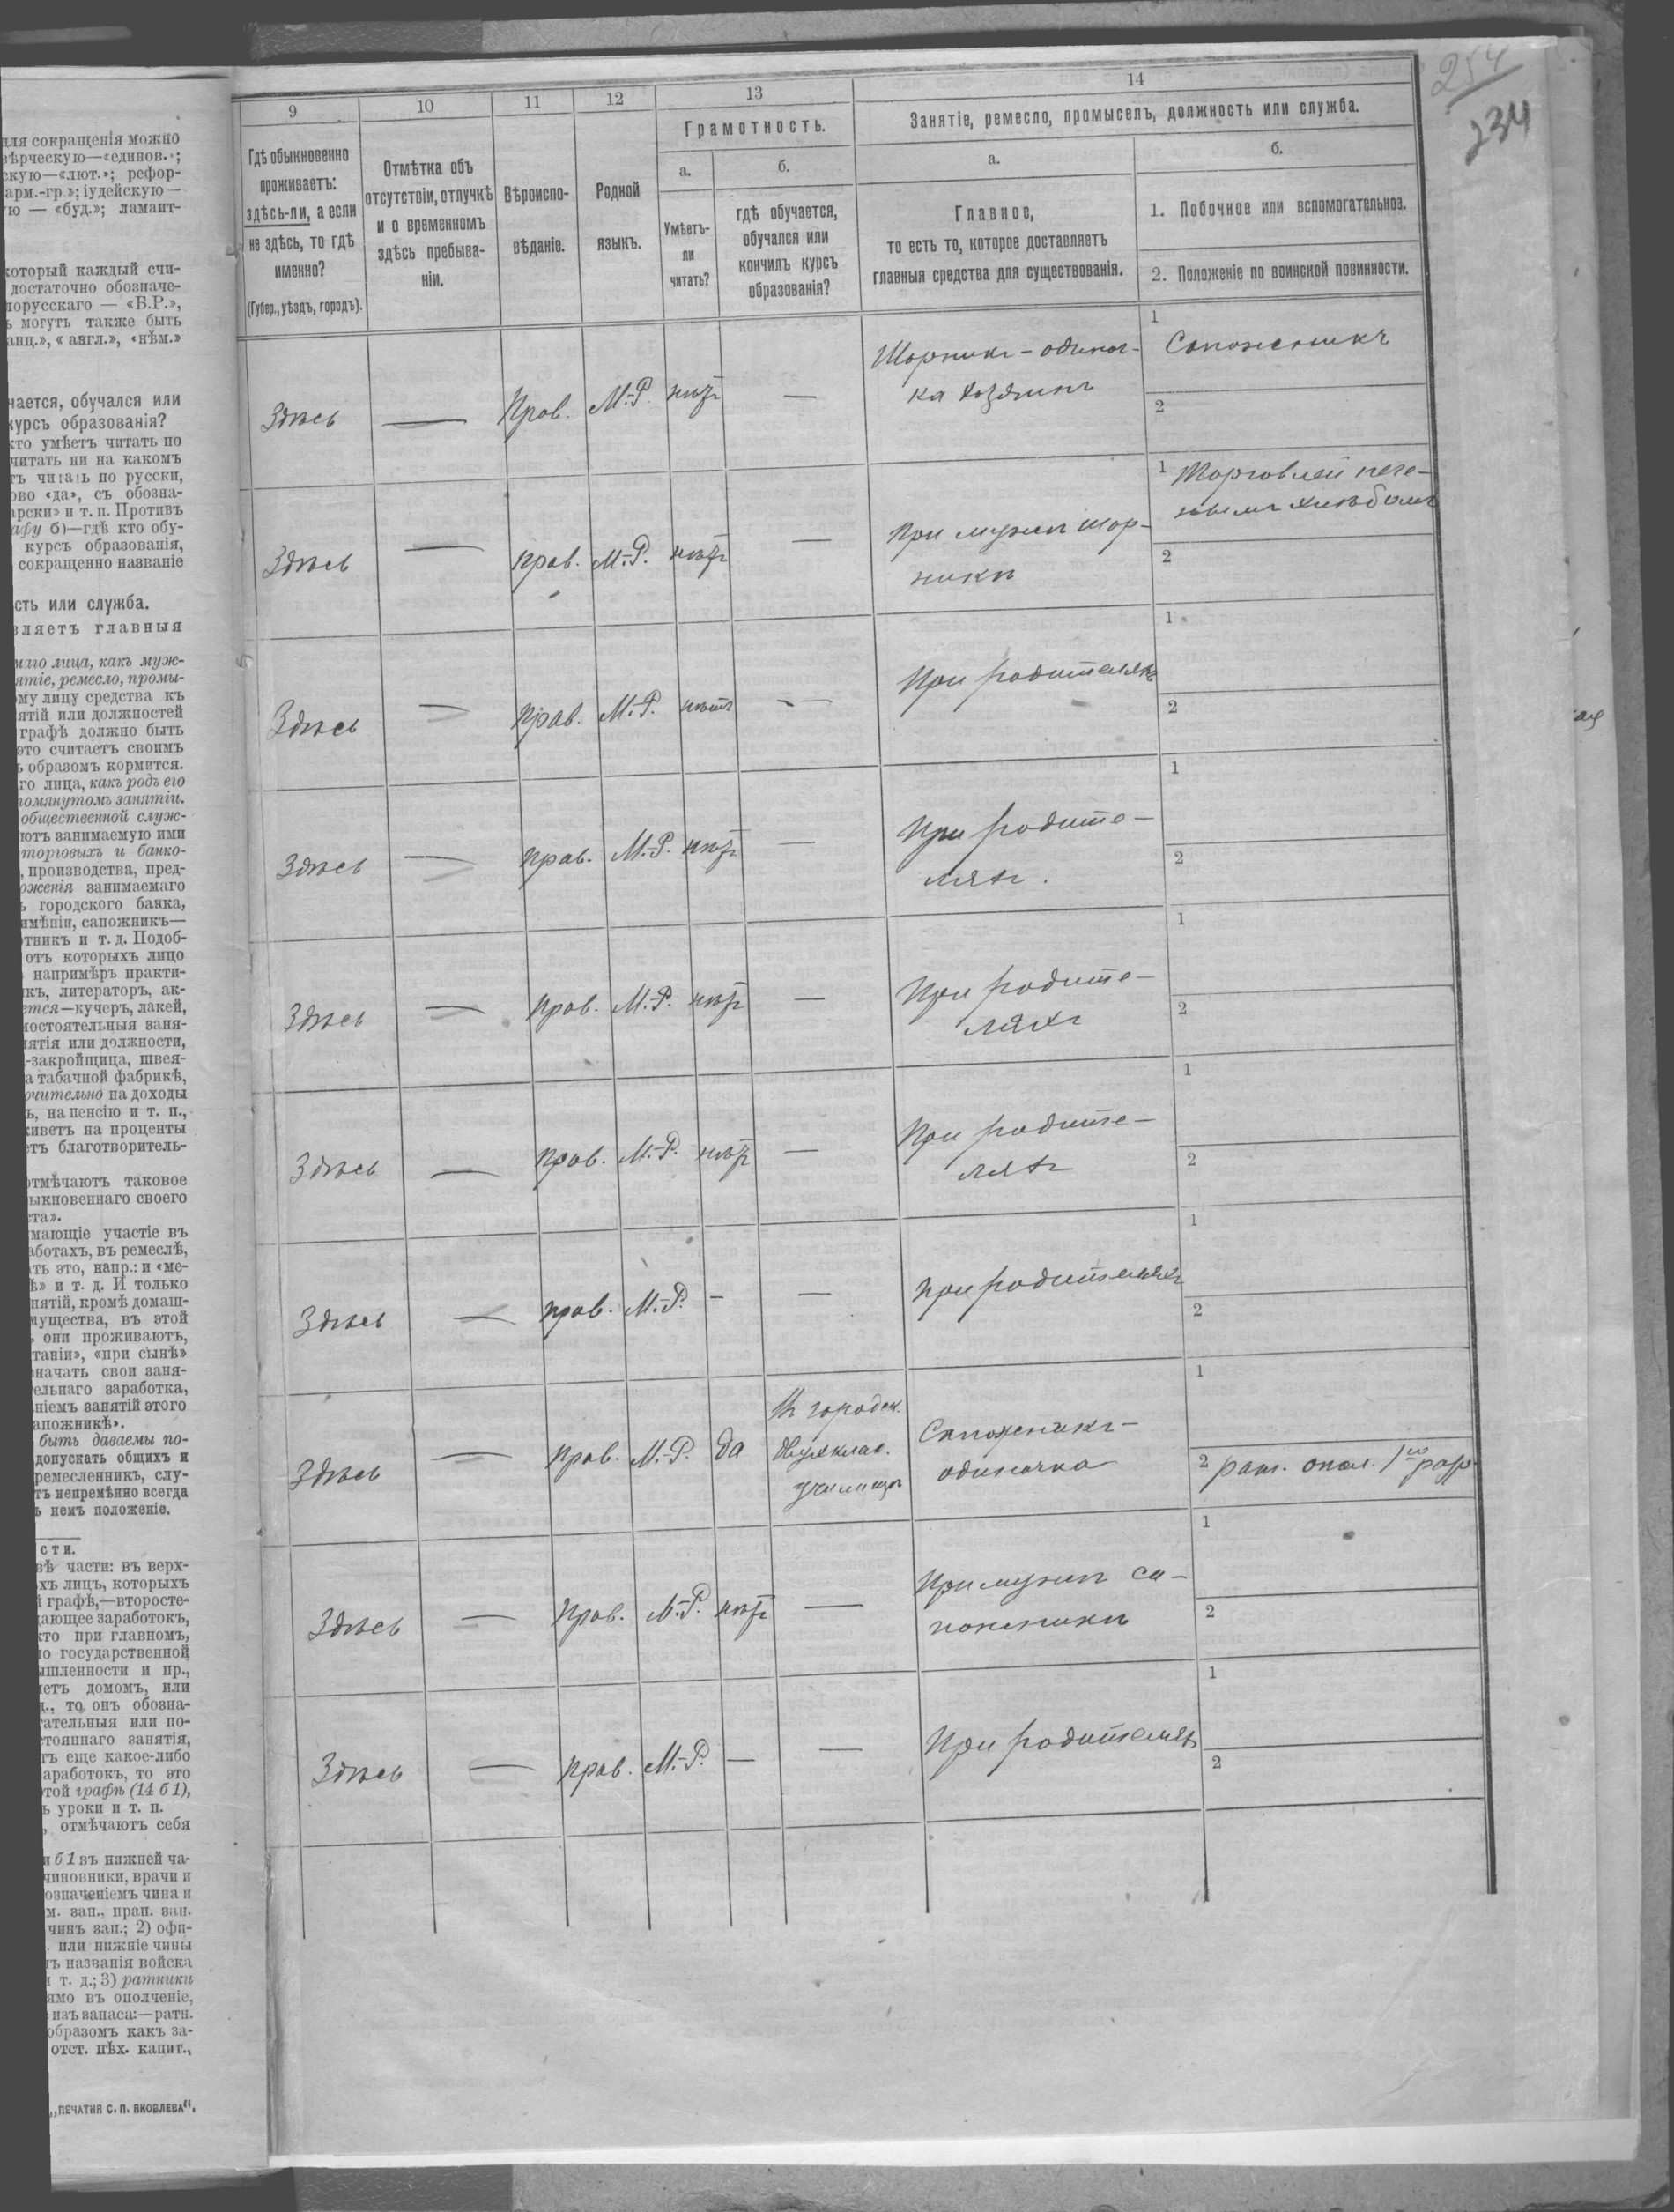 для сокращенія можно
вѣрческую—«единов.»;
скую—«лют.»; рефор-
арм.-гр.»; іудейскую—
ую — «буд.»; ламаит-
который каждый счи-
достаточно обозначе-
лорусскаго — «Б.Р.»,
ь могутъ также быть
анц.», «англ.», «нѣм.»
чается, обучался или
курсъ образованія?
кто умѣетъ читать по
читать ни на какомъ
тъ читать по русски,
ово «да», съ обозна-
арски» и т. п. Противъ
афу б)—гдѣ кто обу-
курсъ образованія,
сокращенно названіе
сть или служба.
вляетъ главныя
маго лица, какъ муж-
ятіе, ремесло, промы-
ому лицу средства къ
ятій или должностей
графѣ должно быть
это считаетъ своимъ
ъ образомъ кормится.
го лица, какъ родъ его
помянутомъ занятіи.
общественной служ-
ютъ занимаемую ими
торговыхъ и банко-
, производства, пред-
оженія занимаемаго
ъ городского банка,
имѣніи, сапожникъ—
тникъ и т. д. Подоб-
отъ которыхъ лицо
напримѣръ практи-
къ, литераторъ, ак-
ется—кучеръ, лакей,
мостоятельныя заня-
нятія или должности,
-закройщица, швея-
а табачной фабрикѣ,
ючительно на доходы
ъ, на пенсію и т. п.,
живетъ на проценты
етъ благотворитель-
отмѣчаютъ таковое
ыкновеннаго своего
ста».
мающіе участіе въ
аботахъ, въ ремеслѣ,
ать это, напр.: и «ме-
ѣ» и т. д. И только
нятій, кромѣ домаш-
мущества, въ этой
ъ они проживаютъ,
таніи», «при сынѣ»
значать свои заня-
ельнаго заработка,
ніемъ занятій этого
апожникѣ».
быть даваемы по-
допускать общихъ и
ремесленникъ, слу-
тъ непремѣнно всегда
ъ немъ положеніе.
сти.
вѣ части: въ верх-
хъ лицъ, которыхъ
й графѣ,—второсте-
дающее заработокъ,
кто при главномъ,
по государственной
ышленности и пр.,
летъ домомъ, или
д., то онъ обозна-
гательныя или по-
стояннаго занятія,
тъ еще какое-либо
аработокъ, то это
этой графѣ (14 б 1),
ъ уроки и т. п.
, отмѣчаютъ себя
и б 1 въ нижней ча-
чиновники, врачи и
означеніемъ чина и
м. зап., прап. зап.
чинъ зап.; 2) офи-
или нижніе чины
ъ названія войска
и т. д.; 3) ратники
ямо въ ополченіе,
изъ запаса:—ратн.
образомъ какъ за-
отст. пѣх. капит.,
„ПЕЧАТНЯ С. П. ЯКОВЛЕВА“.
254
234
9 10 11 12 13 14
Гдѣ обыкновенно
проживаетъ:
здѣсь-ли, а если
не здѣсь, то гдѣ
именно?
(Губер., уѣздъ, городъ).
Отмѣтка объ
отсутствіи, отлучкѣ
и о временномъ
здѣсь пребыва-
ніи.
Вѣроиспо-
вѣданіе.
Родной
языкъ.
Грамотность.
а.
Умѣетъ-
ли
читать?
б.
гдѣ обучается,
обучался или
кончилъ курсъ
образованія?
Занятіе, ремесло, промыселъ, должность или служба.
а.
Главное,
то есть то, которое доставляетъ
главныя средства для существованія.
б.
1. Побочное или вспомогательное.
2. Положеніе по воинской повинности.
Здѣсь — Прав. М.-Р. нѣтъ — Шорникъ-одиноч-
ка хозяинъ
1 Сапожникъ
2
Здѣсь — прав. М.-Р. нѣтъ — При мужѣ шор-
никѣ
1 Торговлей пече-
нымъ хлѣбомъ
2
Здѣсь — прав. М.-Р. нѣтъ — При родителяхъ
1
2
Здѣсь — прав. М.-Р. нѣтъ — При родите-
ляхъ.
1
2
Здѣсь — прав. М.-Р. нѣтъ — При родите-
ляхъ
1
2
Здѣсь — прав. М.-Р. нѣтъ — При родите-
ляхъ
1
2
Здѣсь — прав. М.-Р. — — При родителяхъ
1
2
Здѣсь — прав. М.-Р. да
Въ городск.
двухклас.
училищѣ
Сапожникъ-
одиночка
1
2 рат. опол. 1го разр.
Здѣсь — прав. М.-Р. нѣтъ — При мужѣ са-
пожникѣ
1
2
Здѣсь — прав. М.-Р. — — При родителяхъ
1
2